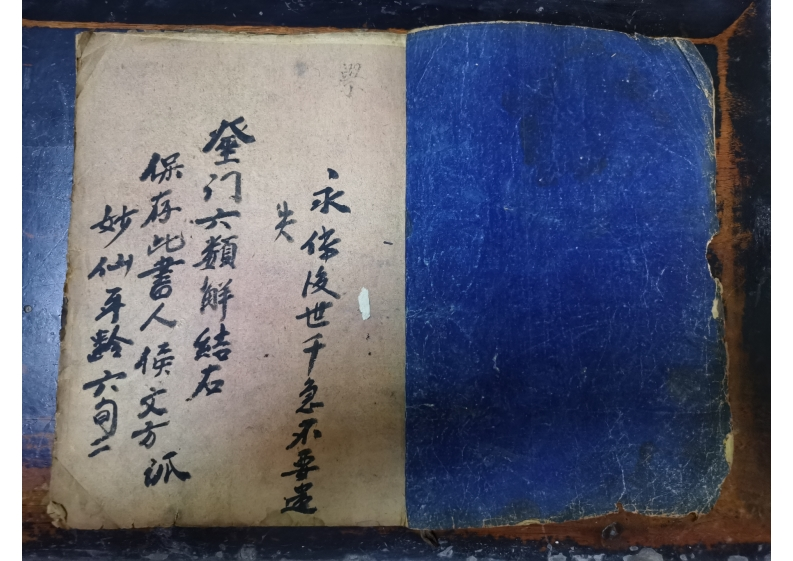 永傳後世千急不要遺
失
门六類觧結右
保存此書人侯文方派
妙仙年齡六旬二